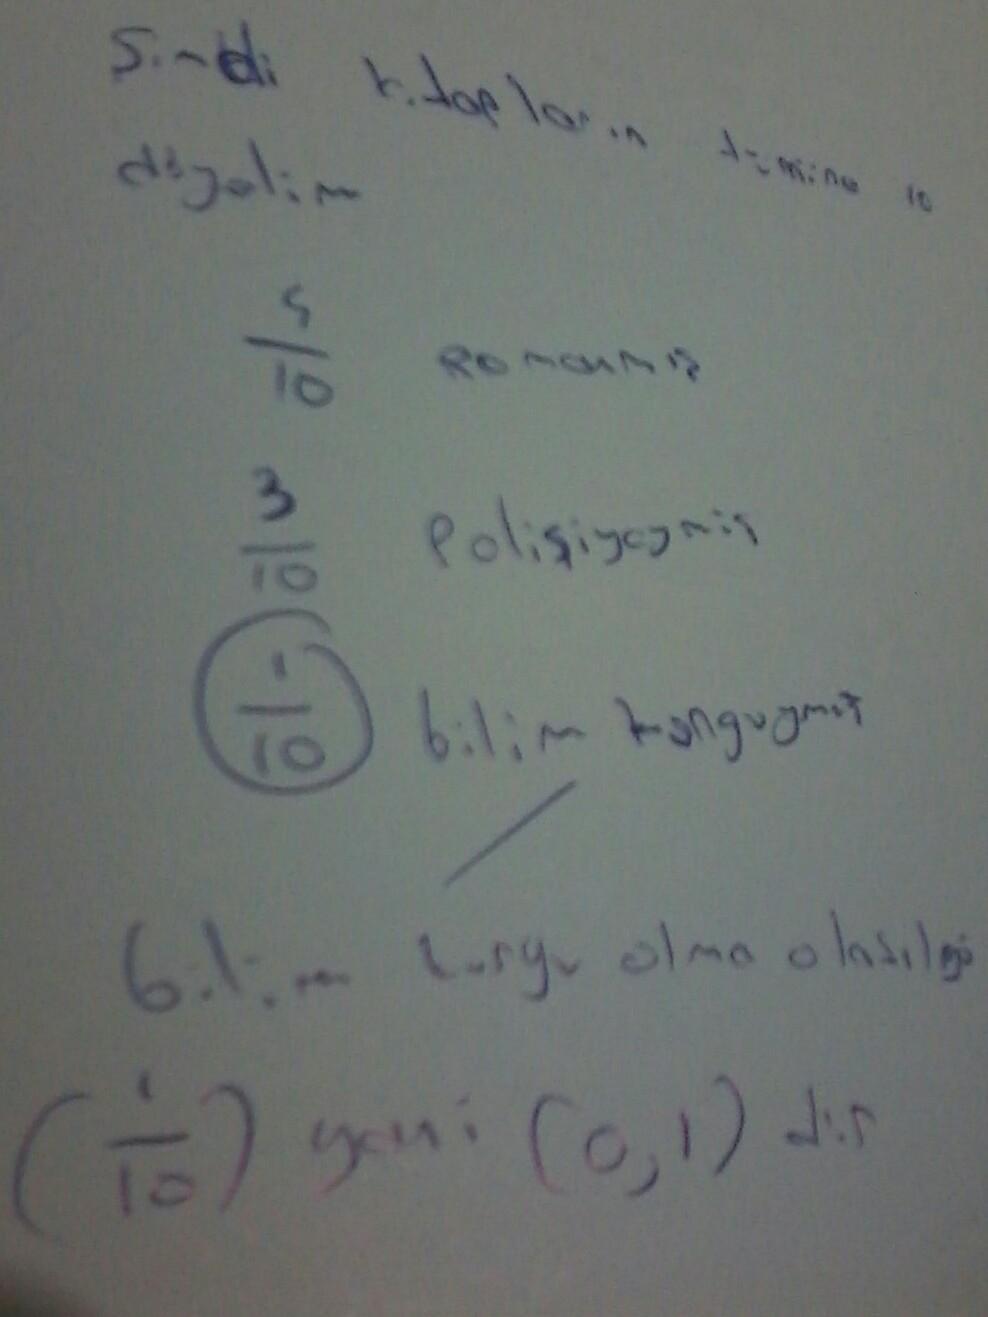 Şimdi kitapların tümüne 10
diyelim
5/10 Romanmış
3/10 Polisiyeymiş
1/10 bilim kurguymuş
bilim kurgu olma olasılığı
(1/10) yani (0,1) dir